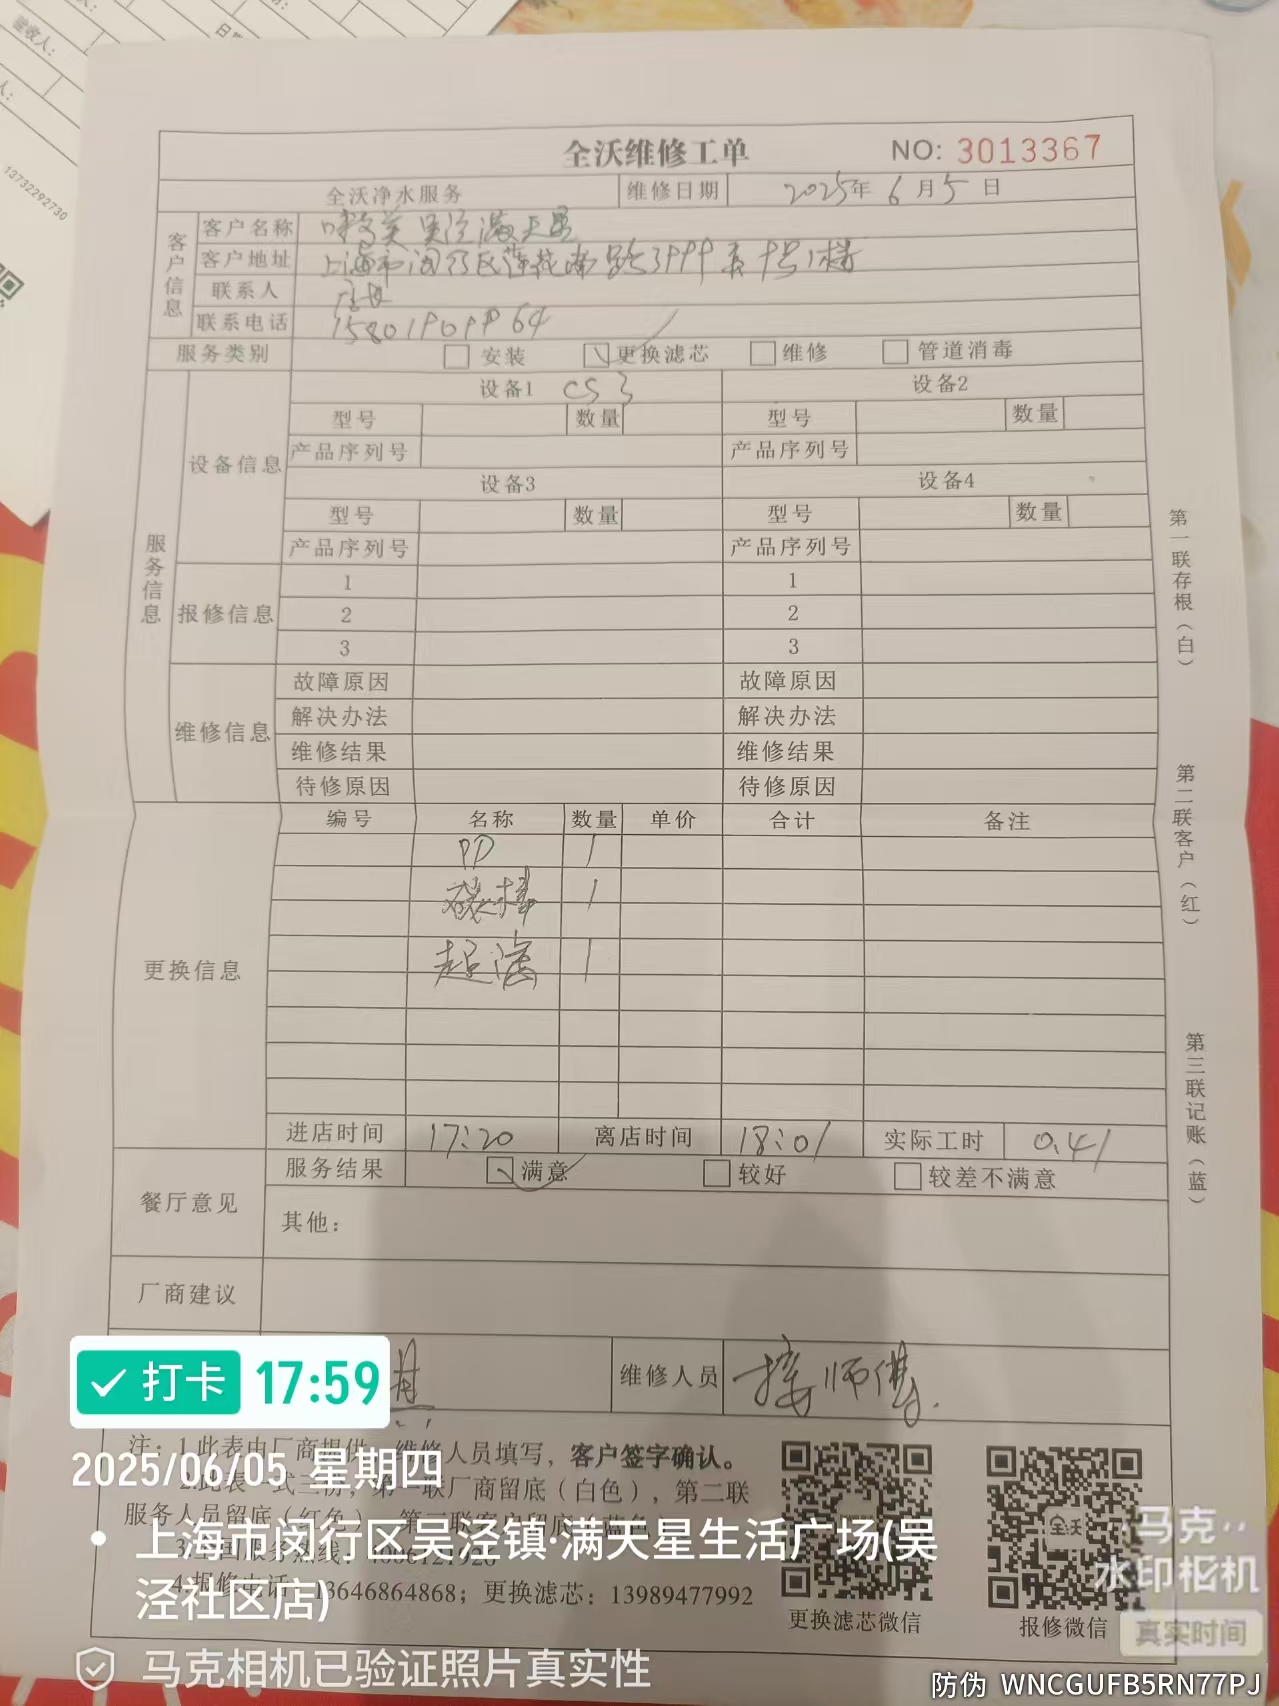 验收人:
13732292730
全沃维修工单
NO: 3013367
全沃净水服务 维修日期 2025年 6月 5日
客户信息
客户名称 吴泾满天星
客户地址 上海市闵行区莲花南路3999弄 号1楼
联系人
联系电话 15801909964
服务类别 安装 更换滤芯 维修 管道消毒
服务信息
设备信息
设备1 CS3 设备2
型号 数量 型号 数量
产品序列号 产品序列号
设备3 设备4
型号 数量 型号 数量
产品序列号 产品序列号
报修信息
1 1
2 2
3 3
维修信息
故障原因 故障原因
解决办法 解决办法
维修结果 维修结果
待修原因 待修原因
更换信息
编号 名称 数量 单价 合计 备注
PP 1
碳棒 1
超滤 1
进店时间 17:20 离店时间 18:01 实际工时 0.41
餐厅意见
服务结果 满意 较好 较差不满意
其他:
厂商建议
维修人员 师傅.
第一联存根(白)
第二联客户(红)
第三联记账(蓝)
注: 1.此表由厂商提供 维修人员填写, 客户签字确认。
2.此表一式三份, 第一联厂商留底(白色), 第二联
服务人员留底(红色) 第三联客户留底(蓝色)
4.报修电话 13646864868; 更换滤芯: 13989477992
更换滤芯微信
报修微信
全沃
打卡 17:59
2025/06/05 星期四
上海市闵行区吴泾镇·满天星生活广场(吴
泾社区店)
马克相机已验证照片真实性
马克
水印相机
真实时间
防伪 WNCGUFB5RN77PJ